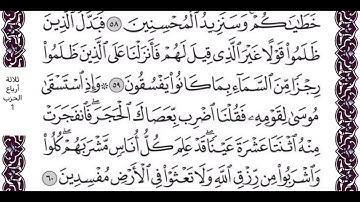 خَطَٰيَٰكُمْ وَسَنَزِيدُ ٱلْمُحْسِنِينَ ٥٨ فَبَدَّلَ ٱلَّذِينَ
ظَلَمُوا۟ قَوْلًا غَيْرَ ٱلَّذِى قِيلَ لَهُمْ فَأَنزَلْنَا عَلَى ٱلَّذِينَ ظَلَمُوا۟
رِجْزًا مِّنَ ٱلسَّمَآءِ بِمَا كَانُوا۟ يَفْسُقُونَ ٥٩ ۞ وَإِذِ ٱسْتَسْقَىٰ
مُوسَىٰ لِقَوْمِهِۦ فَقُلْنَا ٱضْرِب بِّعَصَاكَ ٱلْحَجَرَ ۖ فَٱنفَجَرَتْ
مِنْهُ ٱثْنَتَا عَشْرَةَ عَيْنًا ۖ قَدْ عَلِمَ كُلُّ أُنَاسٍ مَّشْرَبَهُمْ ۖ كُلُوا۟
وَٱشْرَبُوا۟ مِن رِّزْقِ ٱللَّهِ وَلَا تَعْثَوْا۟ فِى ٱلْأَرْضِ مُفْسِدِينَ ٦٠
ثلاثة
أرباع
الحزب
1